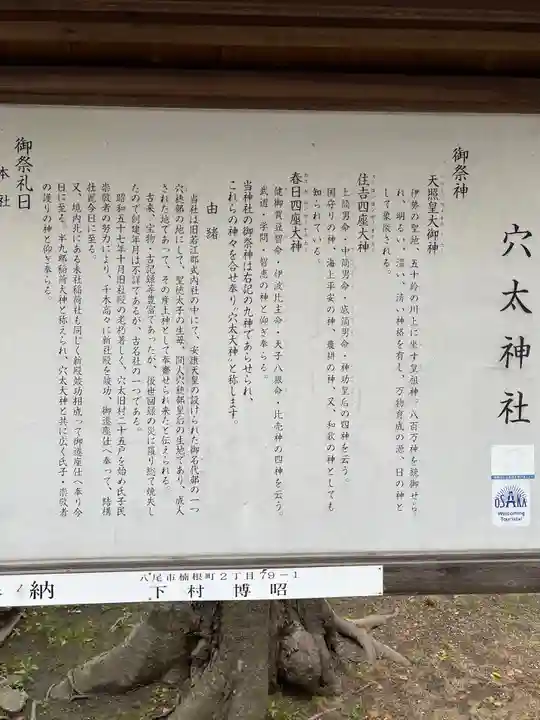 穴太神社
御祭神
天照皇大御神
伊勢の聖地、五十鈴の川上に坐す皇祖神。八百万神を統御せら
れ、明るい、温い、清い神格を有し、万物育成の源、日の神と
して象徴される。
住吉四座大神
上筒男命・中筒男命・底筒男命・神功皇后の四神を云う。
国守りの神、海上平安の神、農耕の神、又、和歌の神としても
知られている。
春日四座大神
健御賀豆智命・伊波比主命・天子八根命・比売神の四神を云う。
武道・学問・智恵の神と仰ぎ奉らる。
当神社の御祭神は右記の九神であらせられ、
これらの神々を合せ奉り「穴太大神」と称します。
由緒
当社は旧若江郡式内社の中にて、安康天皇の設けられた御名代部の一つ
穴穂部の地にして、聖徳太子の生母、間人穴穂部皇后の生地であり、成人
された地であって、その産土神として奉齋せられ来たと伝えられる。
古来、宝物・古記録等豊富であったが、後世回録の災に羅り総て焼失し
たので創建年月は不詳であるが、古名社の一つである。
昭和五十七年十月旧社殿の老朽著しく、穴太旧村二十五戸を始め氏子民
崇敬者の努力により、千木高々に新社殿を竣功、御遷座仕へ奉って、結構
壮麗今日に至る。
又、境内北にある末社稲荷社も同じく新殿竣功相成って御遷座仕へ奉り今
日に至る。半九郎稲荷大神と称えられ、穴太大神と共に広く氏子・崇敬者
の護りの神と仰ぎ奉らる。
御祭礼日
本社
OSAKA
Welcoming
Tourists!
納
八尾市楠根町2丁目79-1
下村博昭